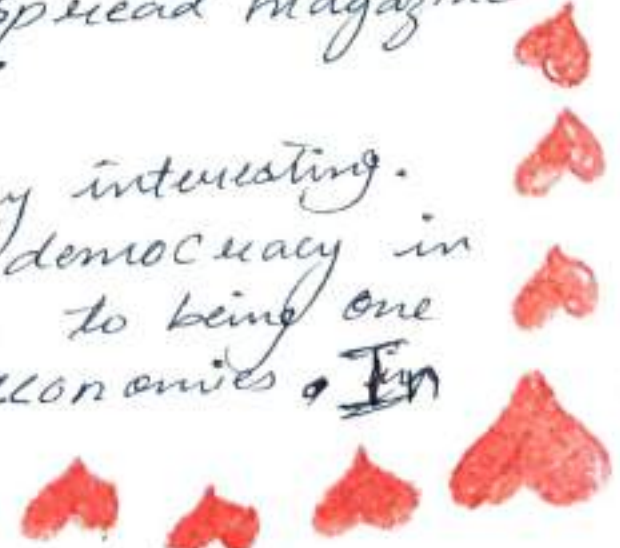 spread magazine
.
y interesting.
democracy in
to being one
economies. In